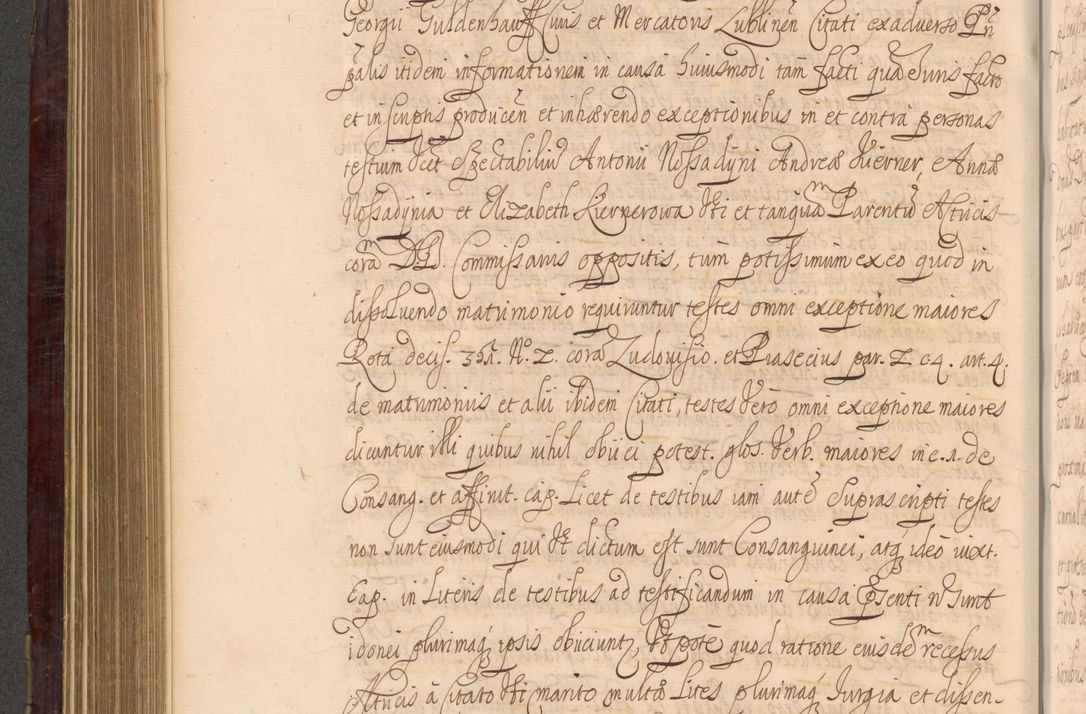 Georgii Guldenhawff Civis et Mercatoris Lublinen̄ Citati ex adverso Prin̄
pālis itidem informationem in causa huiusmodi tām facti quā Juris facto
et in scriptis producēn et inhærendo exceptionibus in et contra personas
testium Vtēt Spectabiliū Antonii Nossadÿni Andreæ Kierner, et Annæ
Nossadÿnia et Elizabeth Kiernerowa Vti et tanquām Parentū Actricis
corām DD. Commissariis oppositis, tum potissimum ex eo quod in
dissolvendo matrimonio requirantur testes omni exceptione maiores
Rota decis. 351. No. 2. corā Ludovisio. et Piasecius par. 2. c 4. art. 4.
de matrimoniis et alii ibidem Citati, testes Vero omni exceptione maiores
dicuntur illi quibus nihil obiici potest. glos. Verb. maiores in c. 1. de
Consang. et affinit. cap. Licet de testibus iam autē Suprascripti testes
non sunt eiusmodi qui Vt dictum est sunt Consanguinei, atq́ ideo iuxt.
Cap. in Literis de testibus ad testificandum in causa Præsenti n̄ sunt
idonei plurimaq́ ipsis obiiciuntz, Vt potē quod ratione eiusdēm recessus
Actricis à Citato Vti marito multæ Lites plurimaq́ Jurgia et dissen-